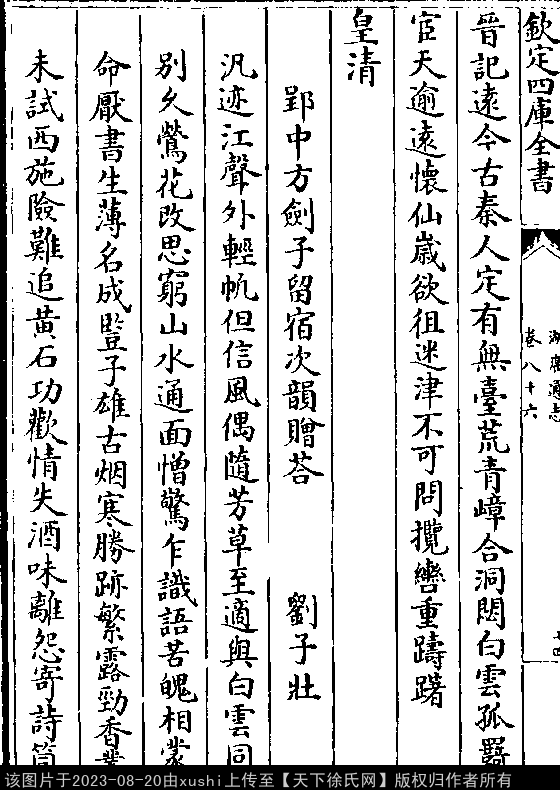 欽定四庫全書
卷八十六
晉記遠今古秦人定有無臺荒青嶂合洞閟白雲孤羇
宦天逾遠懷仙嵗欲徂迷津不可問攬轡重躊躇
皇清
郢中方劍子留宿次韻贈荅 劉子壯
汎迹江聲外輕帆但信風偶隨芳草至適與白雲同
别久鶯花改思窮山水通面憎驚乍識語苦魄相蒙
命厭書生薄名成豎子雄古烟寒勝跡繁露勁香叢
未試西施險難追黄石功歡情失酒味離怨寄詩筒
该图片于2023-08-20由xushi上传至【天下徐氏网】版权归作者所有